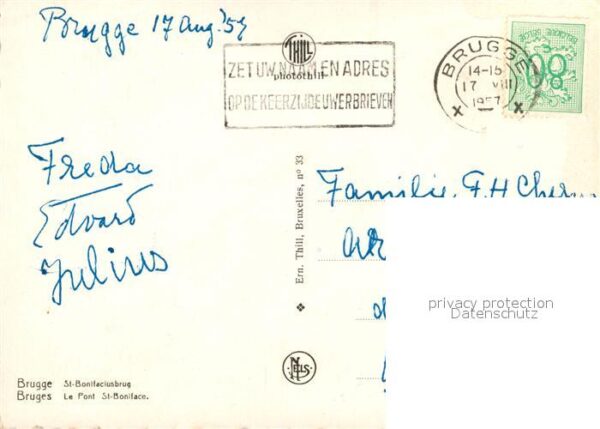 Brugge 17 Aug. '57
THILL
photothill
ZET UW NAAM EN ADRES
OP DE KEERZIJDE UWER BRIEVEN
BRUGGE
14-15
17 VIII
1957
BELGIQUE BELGIE
80
Freda
Edvard
Julius
Familie F.H
Ern. Thill, Bruxelles, nº 33
NELS
privacy protection
Datenschutz
Brugge St-Bonifaciusbrug
Bruges Le Pont St-Boniface.